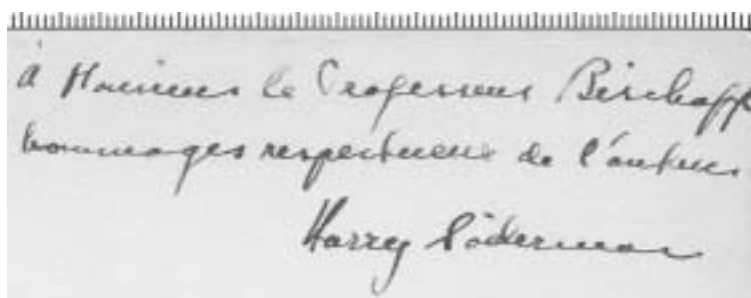 à Monsieur le Professeur Bischoff
hommages respectueux de l'auteur
Harry Söderman